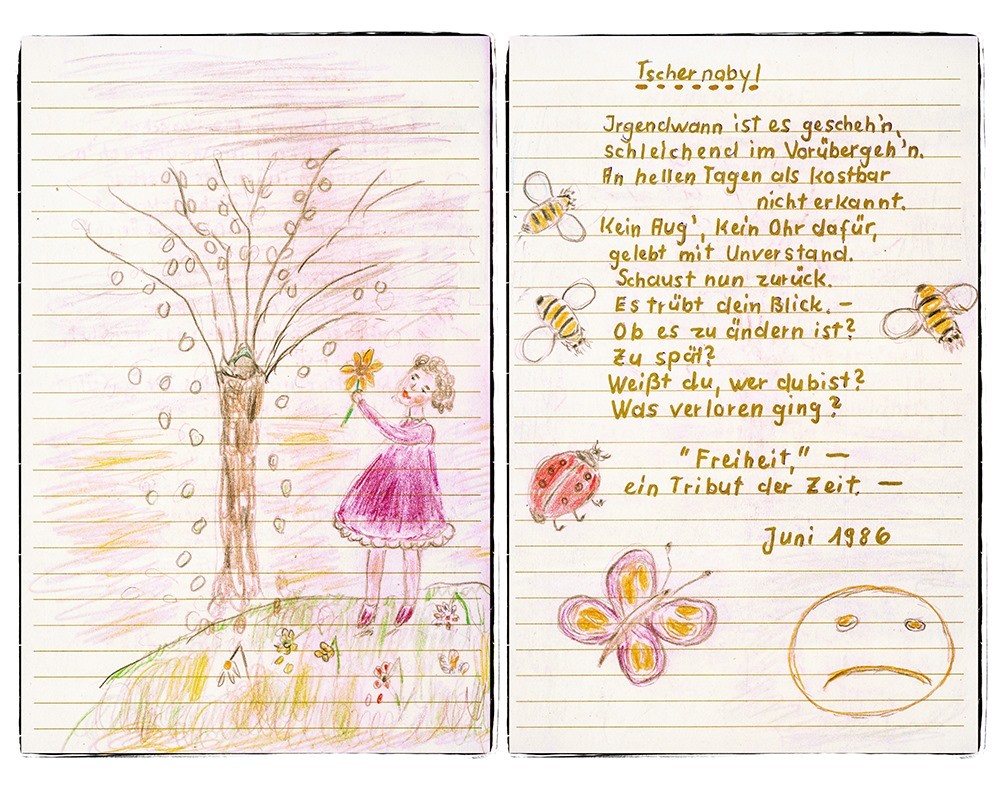 Tschernabyl
Irgendwann ist es gescheh'n,
schleichend im Vorübergeh'n.
An hellen Tagen als kostbar
nicht erkannt.
Kein Aug', kein Ohr dafür,
gelebt mit Unverstand.
Schaust nun zurück.
Es trübt dein Blick. –
Ob es zu ändern ist?
Zu spät?
Weißt du, wer du bist?
Was verloren ging?
"Freiheit," –
ein Tribut der Zeit. –
Juni 1986